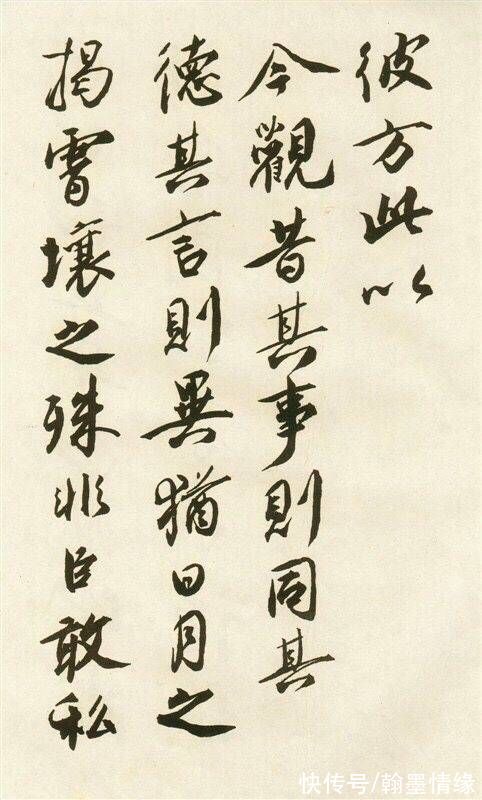 彼方此以
今觀昔其事則同其
德其言則異猶日月之
揭霄壤之殊非臣敢私
快传号/翰墨情缘